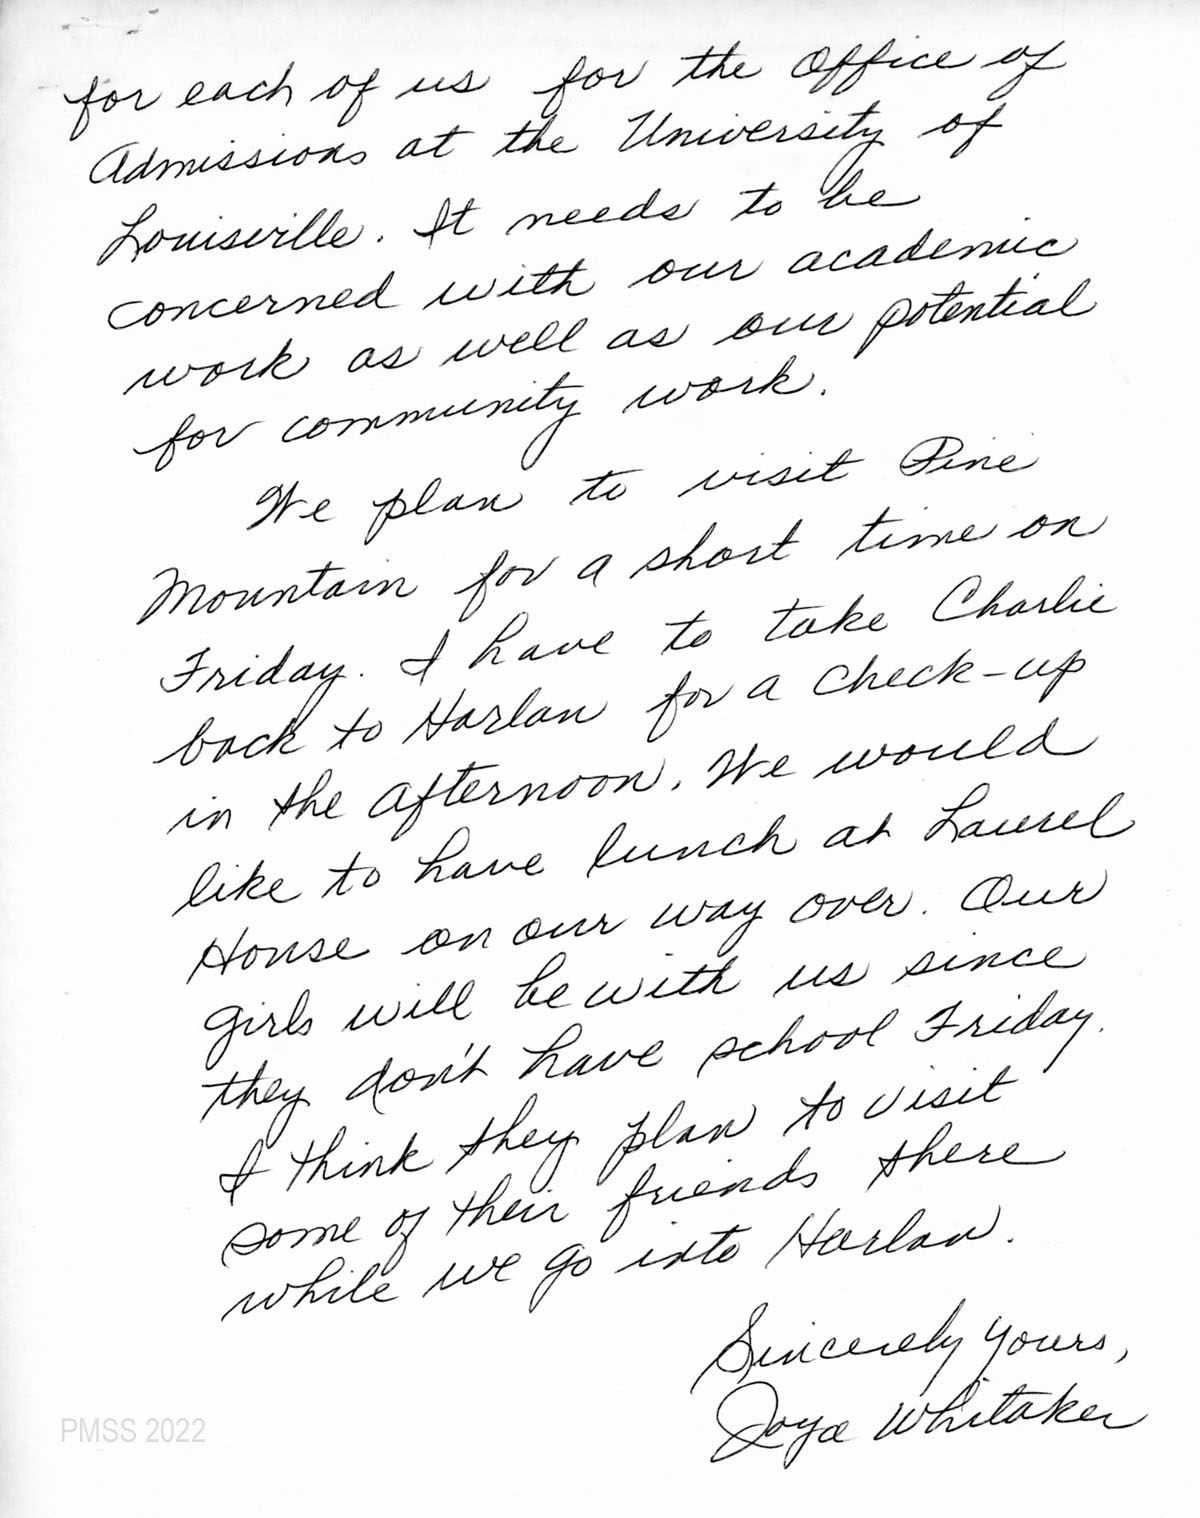 for each of us for the Office of
Admissions at the University of
Louisville. It needs to be
concerned with our academic
work as well as our potential
for community work.
We plan to visit Pine
Mountain for a short time on
Friday. I have to take Charlie
back to Harlan for a check-up
in the afternoon. We would
like to have lunch at Laurel
House on our way over. Our
girls will be with us since
they don't have school Friday.
I think they plan to visit
some of their friends there
while we go into Harlan.
Sincerely yours,
Joya Whitaker
PMSS 2022